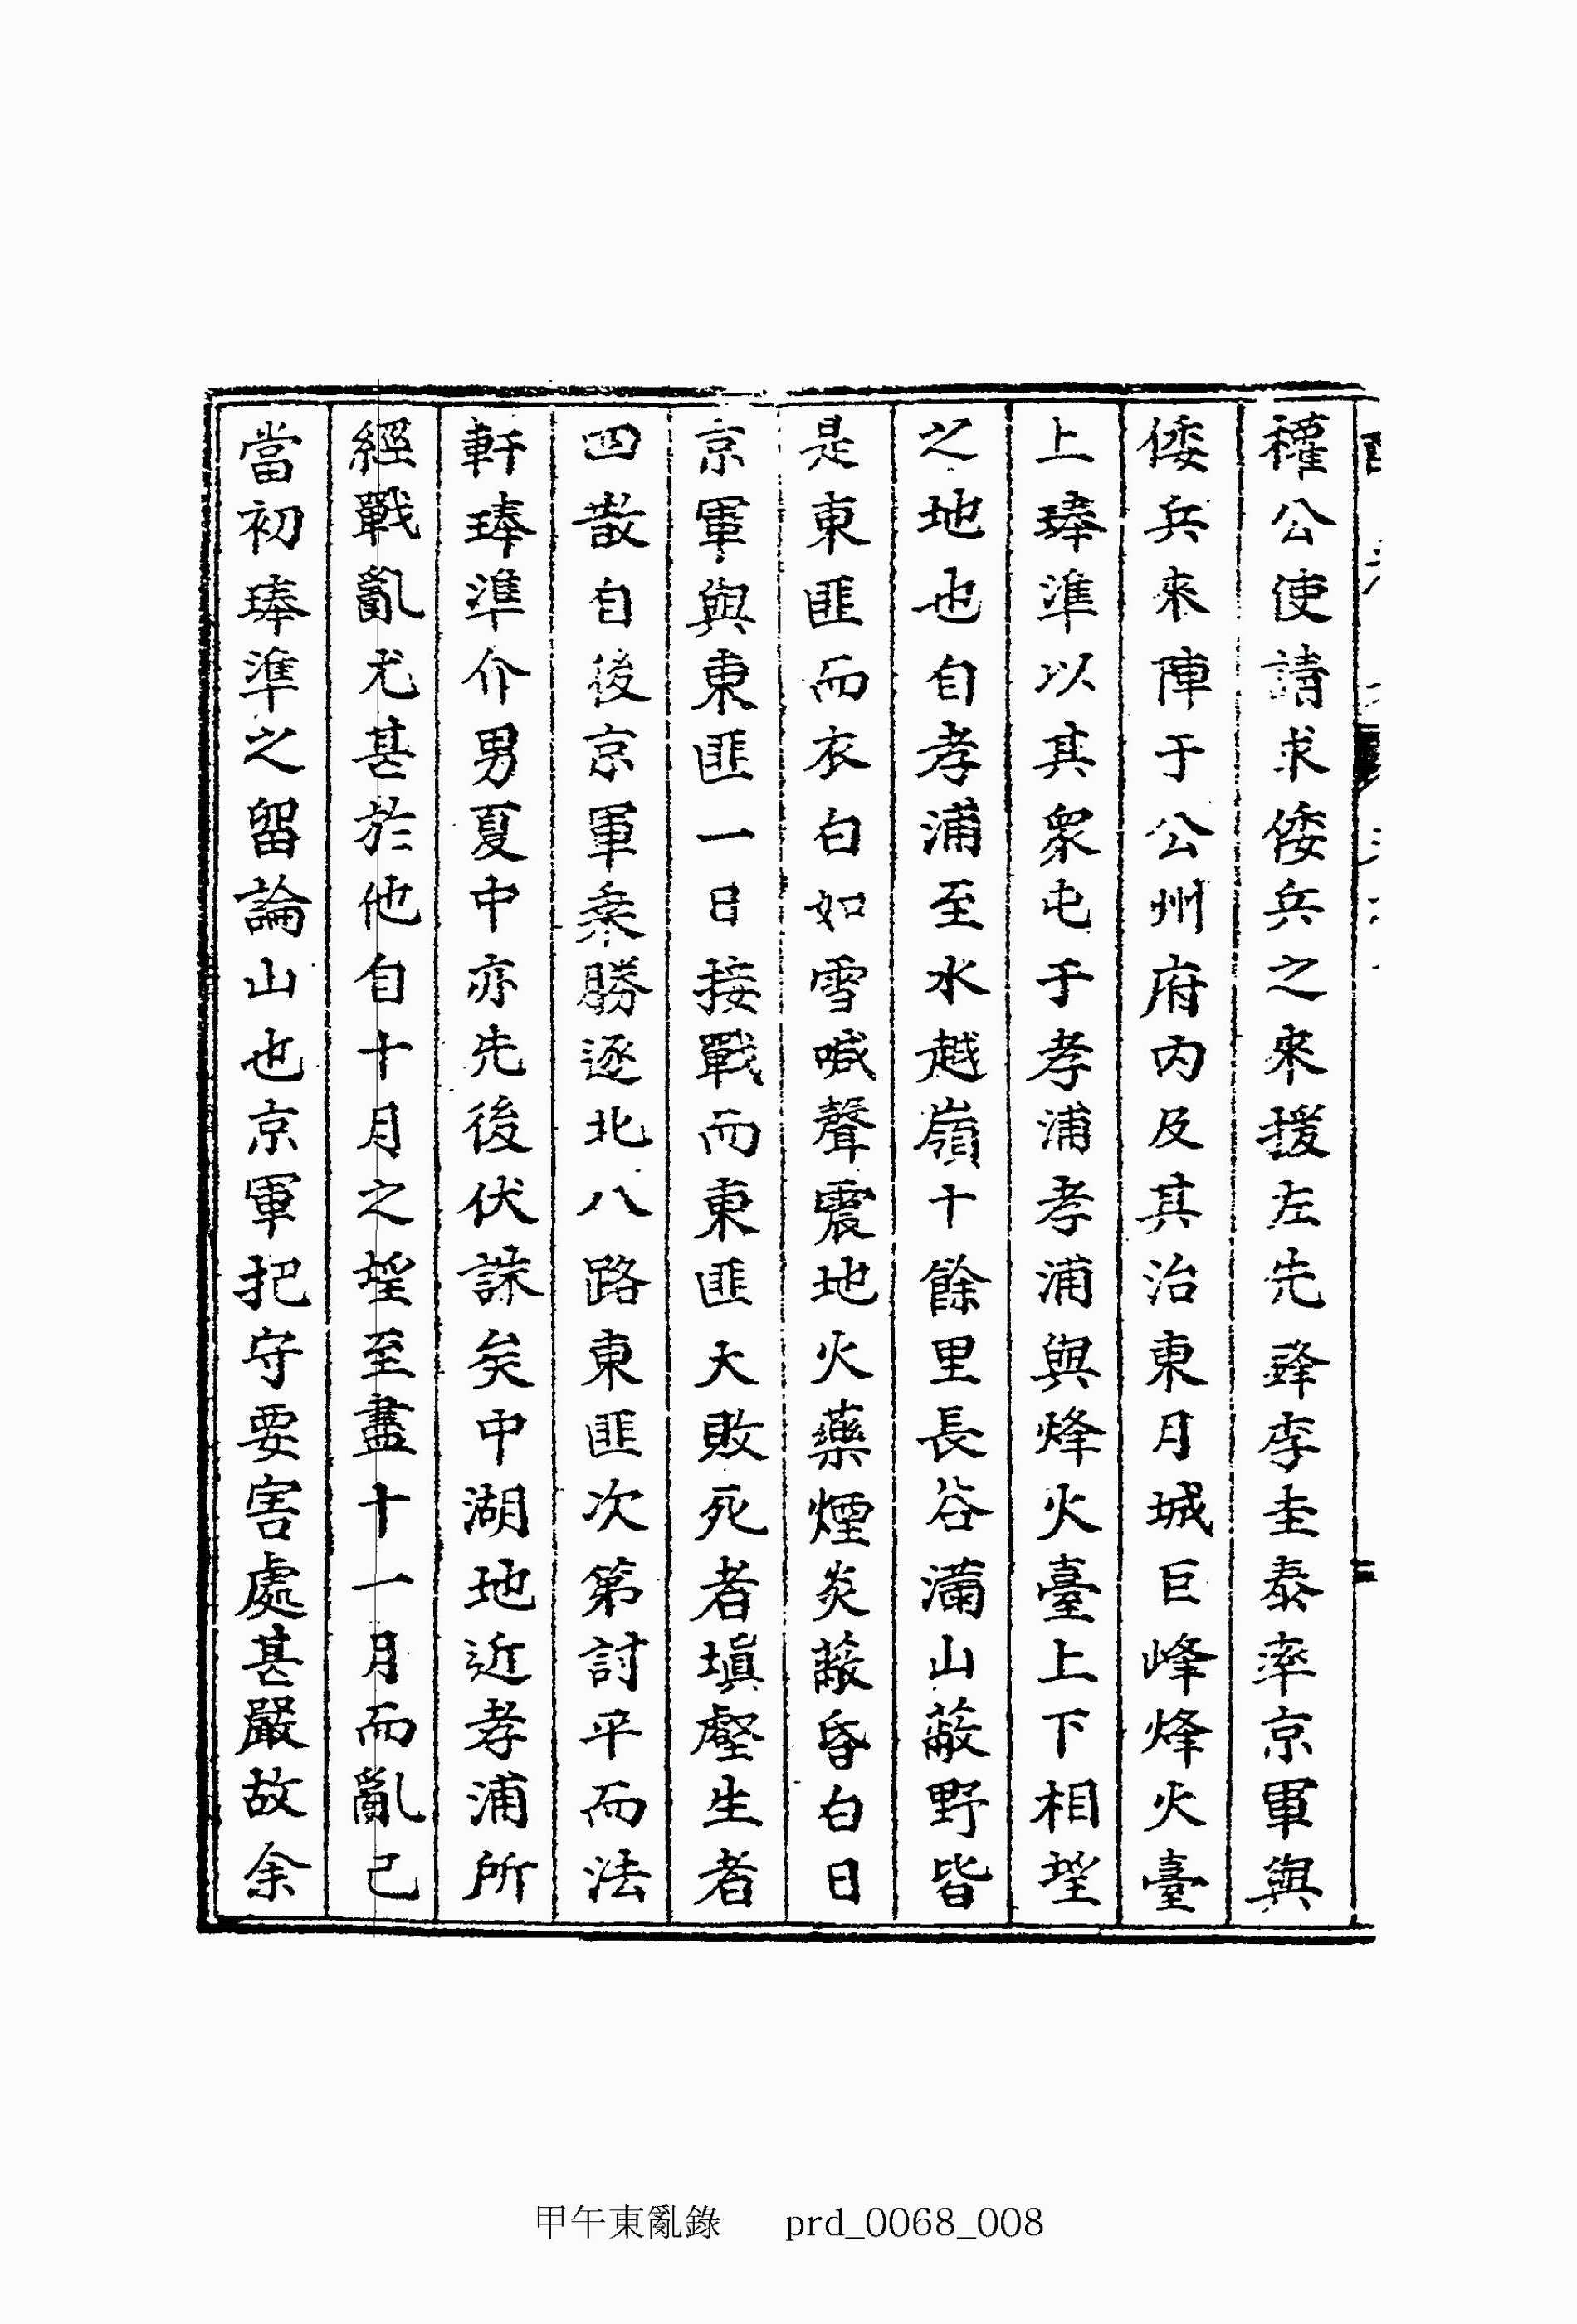 權公使請求倭兵之來援左先鋒李圭泰率京軍與
倭兵來陣于公州府內及其治東月城巨峰烽火臺
上琫準以其衆屯于孝浦孝浦與烽火臺上下相望
之地也自孝浦至水越嶺十餘里長谷滿山蔽野皆
是東匪而衣白如雪喊聲震地火藥煙炎蔽昏白日
京軍與東匪一日接戰而東匪大敗死者塡壑生者
四散自後京軍乘勝逐北八路東匪次第討平而法
軒琫準介男夏中亦先後伏誅矣中湖地近孝浦所
經戰亂尤甚於他自十月之望至盡十一月而亂已
當初琫準之留論山也京軍把守要害處甚嚴故余
甲午東亂錄 prd_0068_008